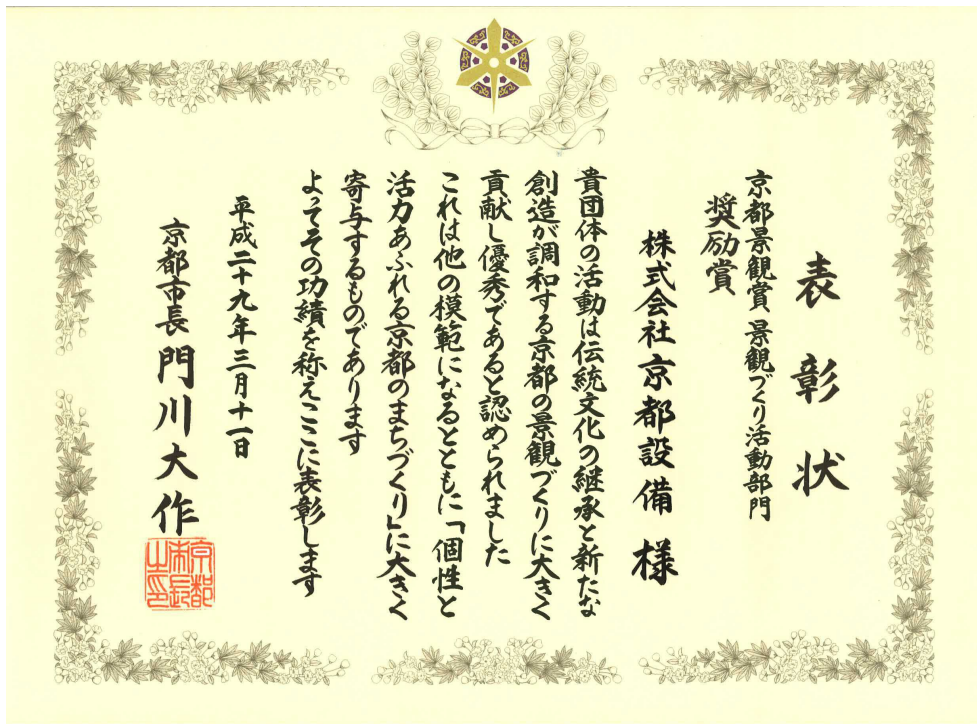 表彰状
京都景観賞 景観づくり活動部門
奨励賞
株式会社京都設備 様
貴団体の活動は伝統文化の継承と新たな
創造が調和する京都の景観づくりに大きく
貢献し優秀であると認められました
これは他の模範になるとともに「個性と
活力あふれる京都のまちづくり」に大きく
寄与するものであります
よってその功績を称えここに表彰します
平成二十九年三月十一日
京都市長 門川大作
京都市長之印